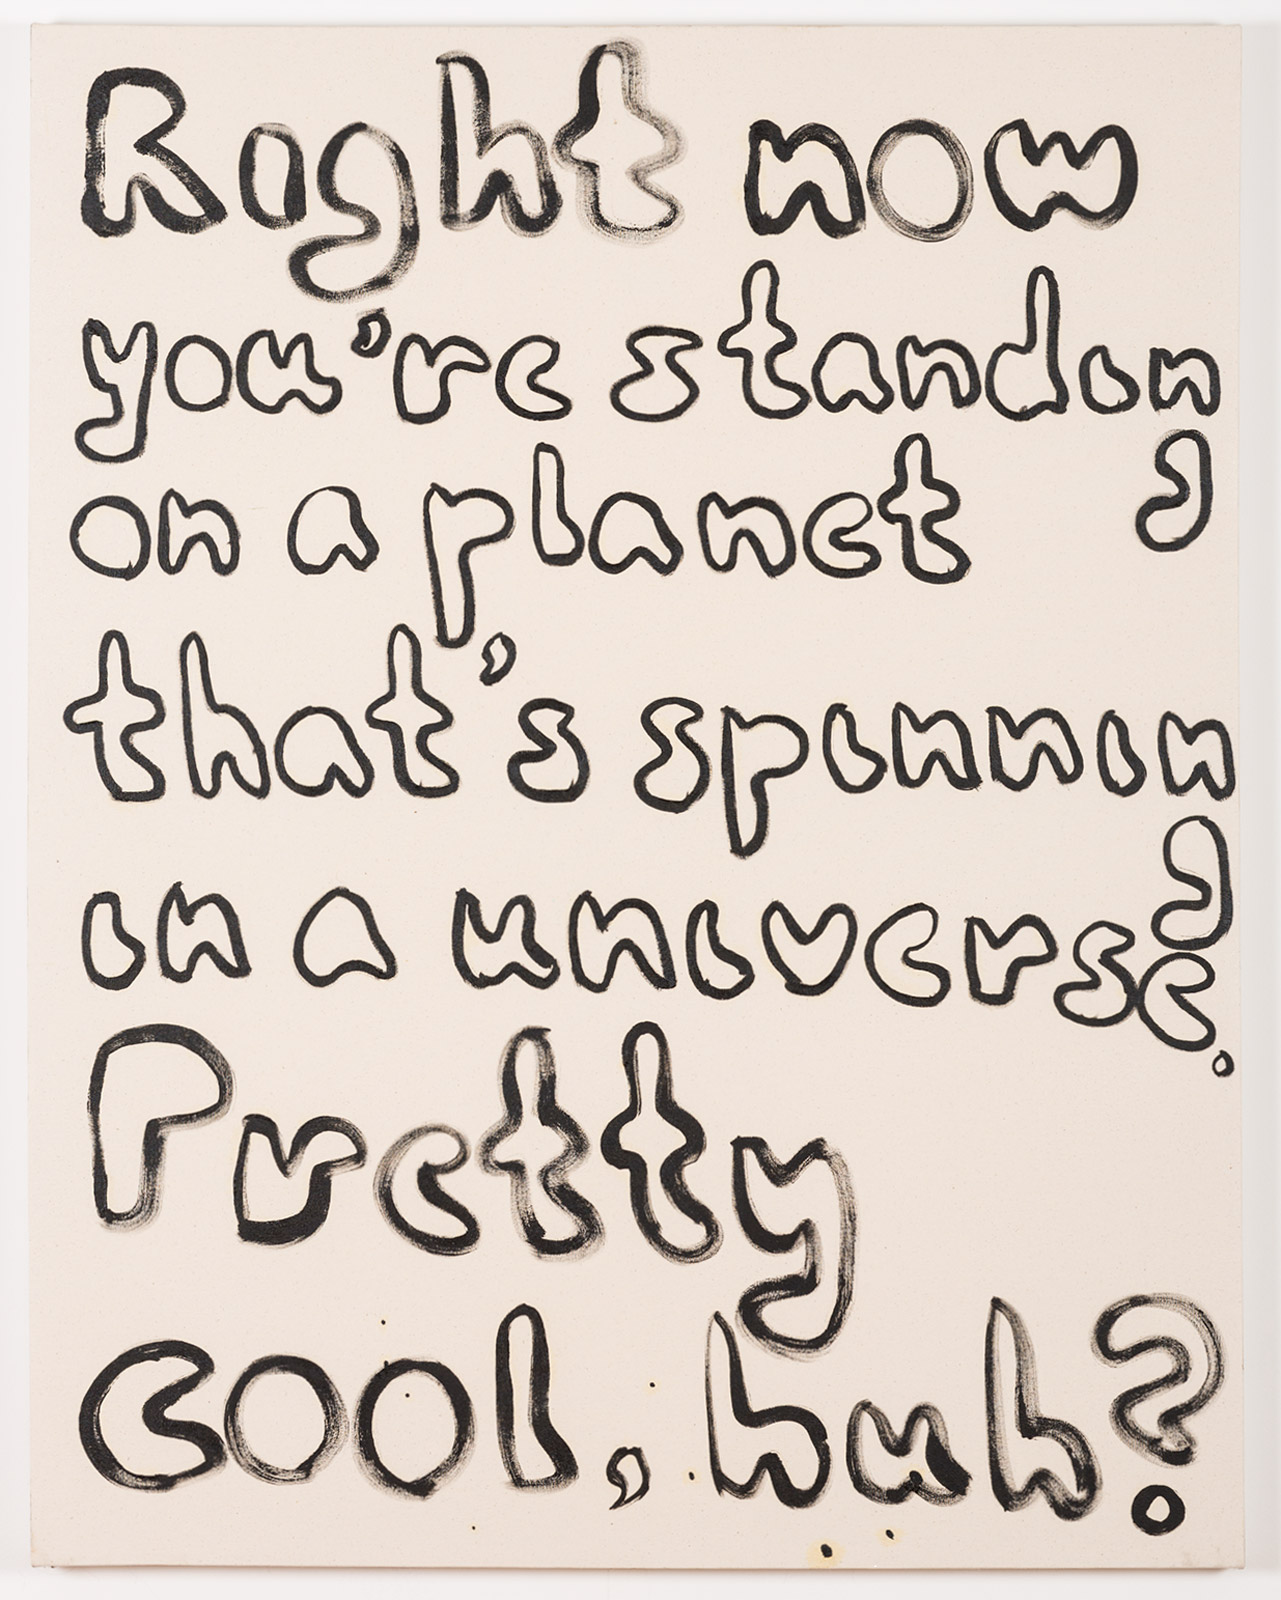 Right now
you're standing
on a planet
that's spinning
in a universe.
Pretty
cool, huh?